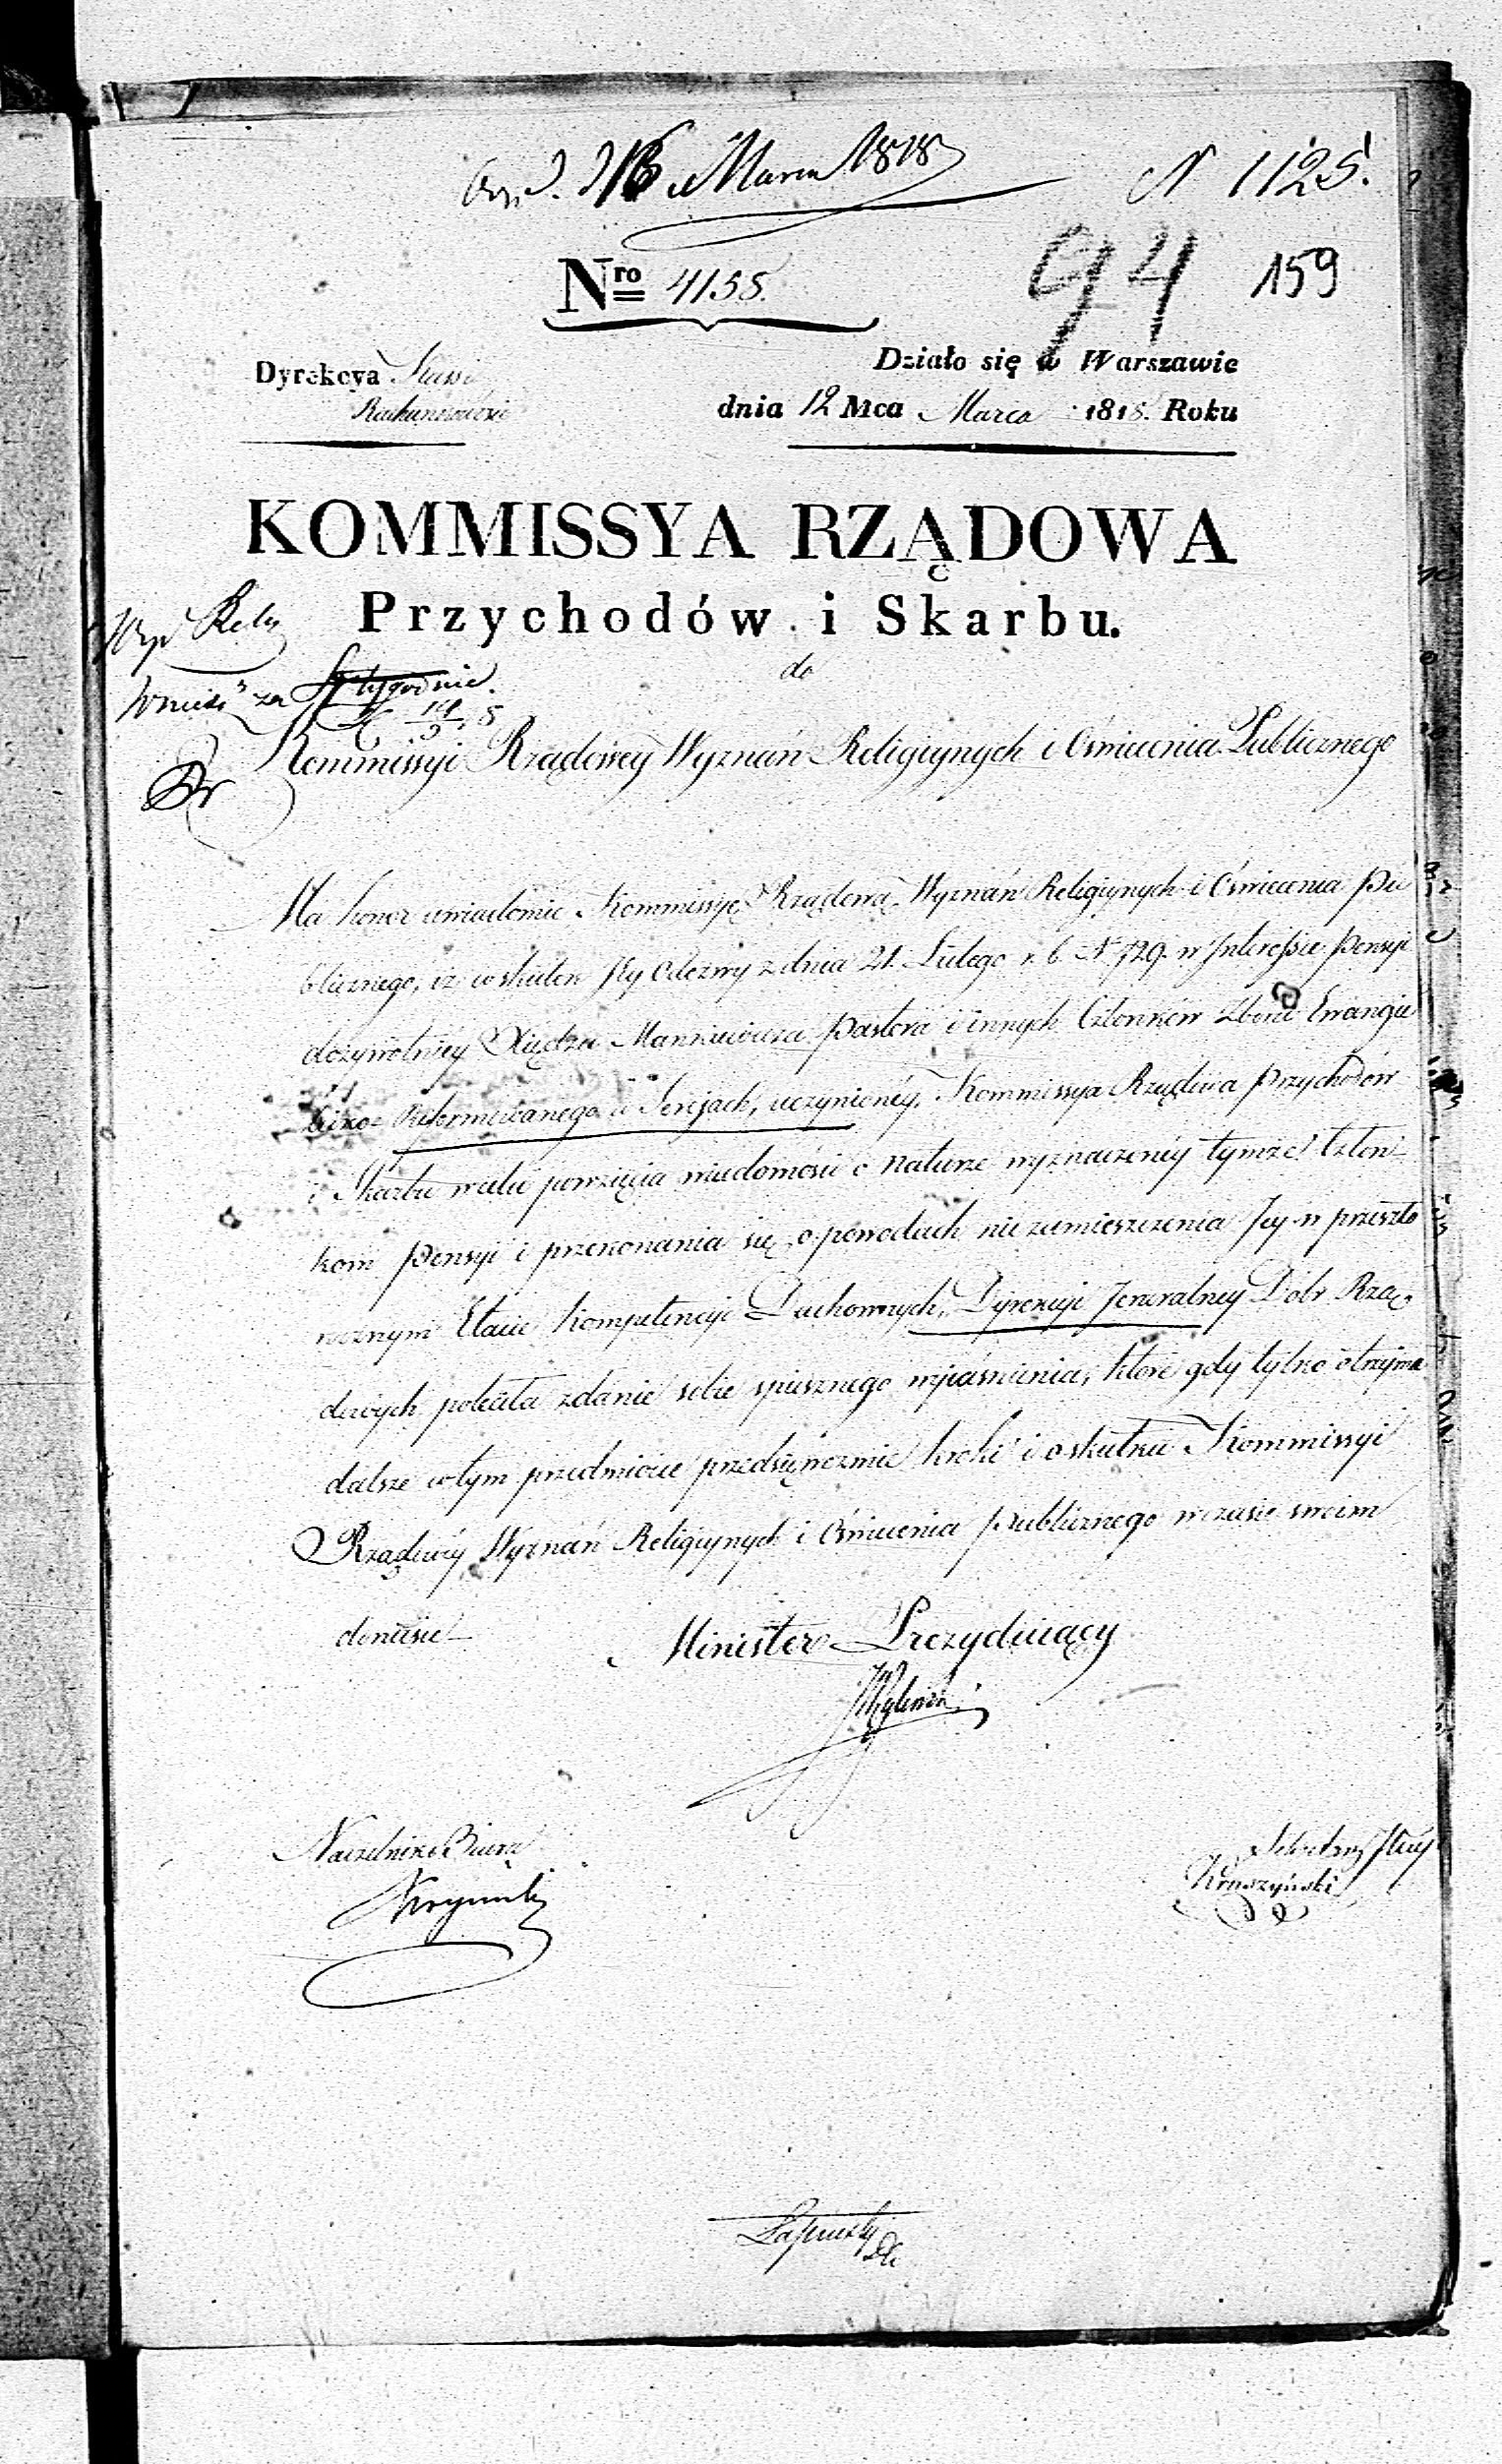 d. 16 Marca 1818
N 1125.
94 159
Nro 4155.
Dyrekcya Kass i
Rachunkowości
Działo się w Warszawie
dnia 12 Mca Marca 1818. Roku
KOMMISSYA RZĄDOWA
Przychodów i Skarbu.
do
Wnieść za tygodnie.
Kommissyi Rządowey Wyznań Religiynych i Oświecenia Publicznego
Ma honor uwiadomić Kommissyę Rządową Wyznań Religiynych i Oświecenia Pu
blicznego, iż w skutek Jey Odezwy z dnia 21. Lutego r. b. N 729. w Interessie Pensyi
dożywotniey Xiędza Pastora i innych Członków Zboru Ewangie
licko Reformowanego w Serejach, uczynioney, Kommissya Rządowa Przychodów
i Skarbu w celu powzięcia wiadomości o naturze wyznaczoney tymże Człon
kom Pensyi i przekonania się o powodach nie zamieszczenia Jey w przeszło
rocznym Etacie Kompetencyi Duchownych, Dyrekcyi Jeneralney Dóbr Rzą
dowych poleciła zdanie sobie spiesznego wyjaśnienia, które gdy tylko otrzyma
dalsze w tym przedmiocie przedsięweźmie kroki i o skutku Kommissyi
Rządowy Wyznań Religiynych i Oświecenia Publicznego w czasie swoim
doniesie
Minister Prezyduiący
Naczelnik Biura
Sekretarz Jlny
Kruszyński